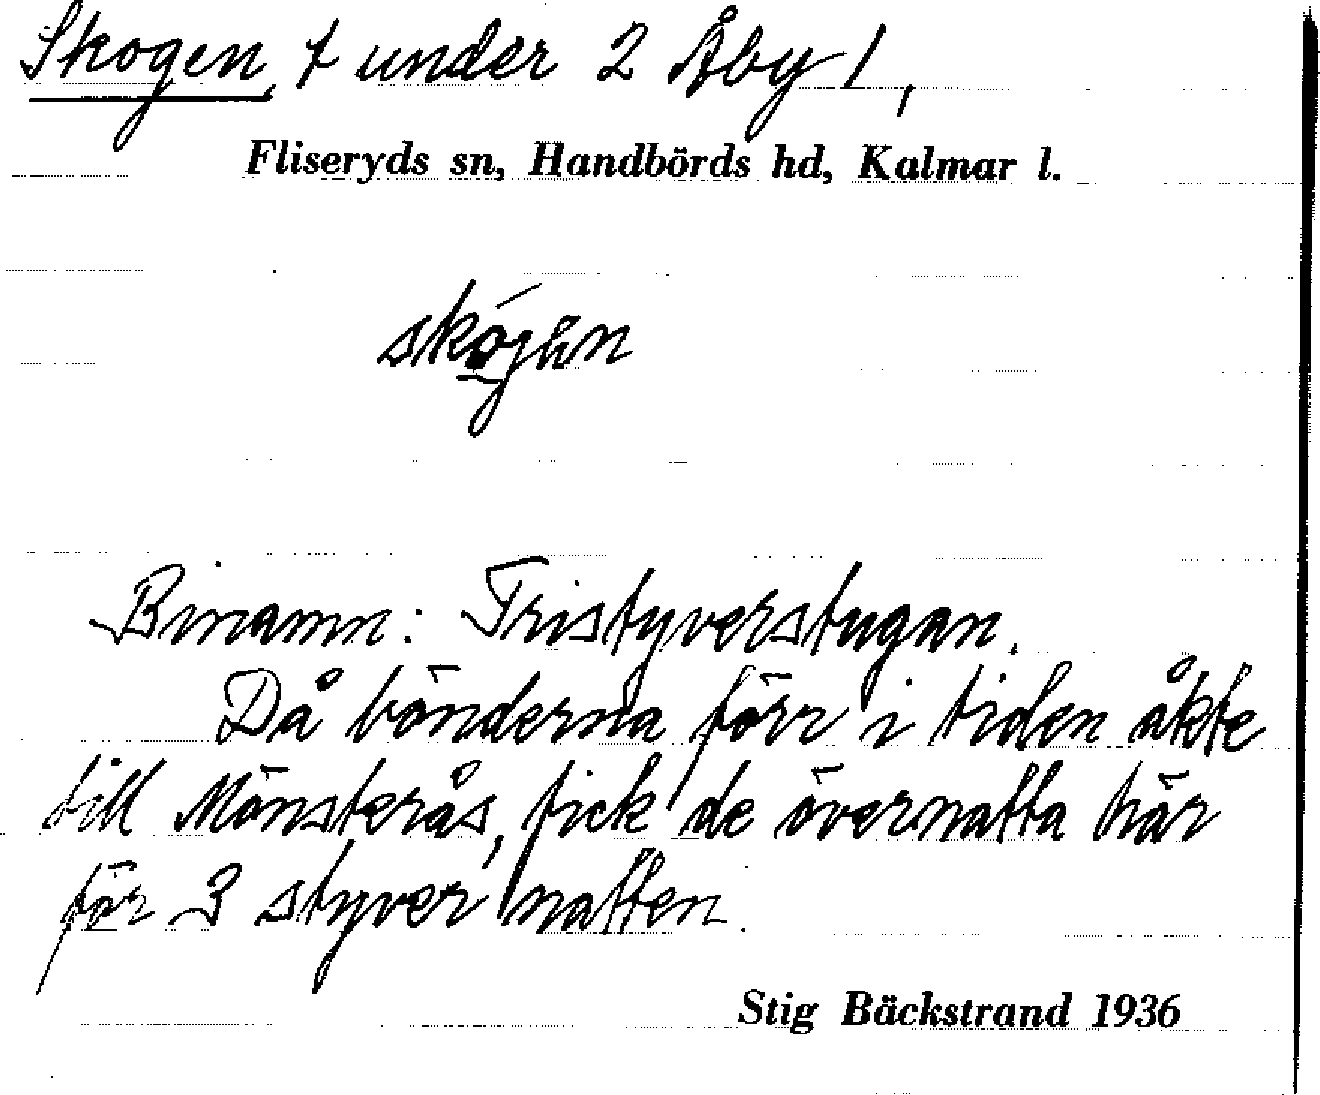 Skogen, t under 2 Åby 1,
Fliseryds sn, Handbörds hd, Kalmar l.
Binamn: Tristyverstugan.
Då bönderna förr i tiden åkte
till Mönsterås, fick de övernatta här
för 3 styver natten.
Stig Bäckstrand 1936